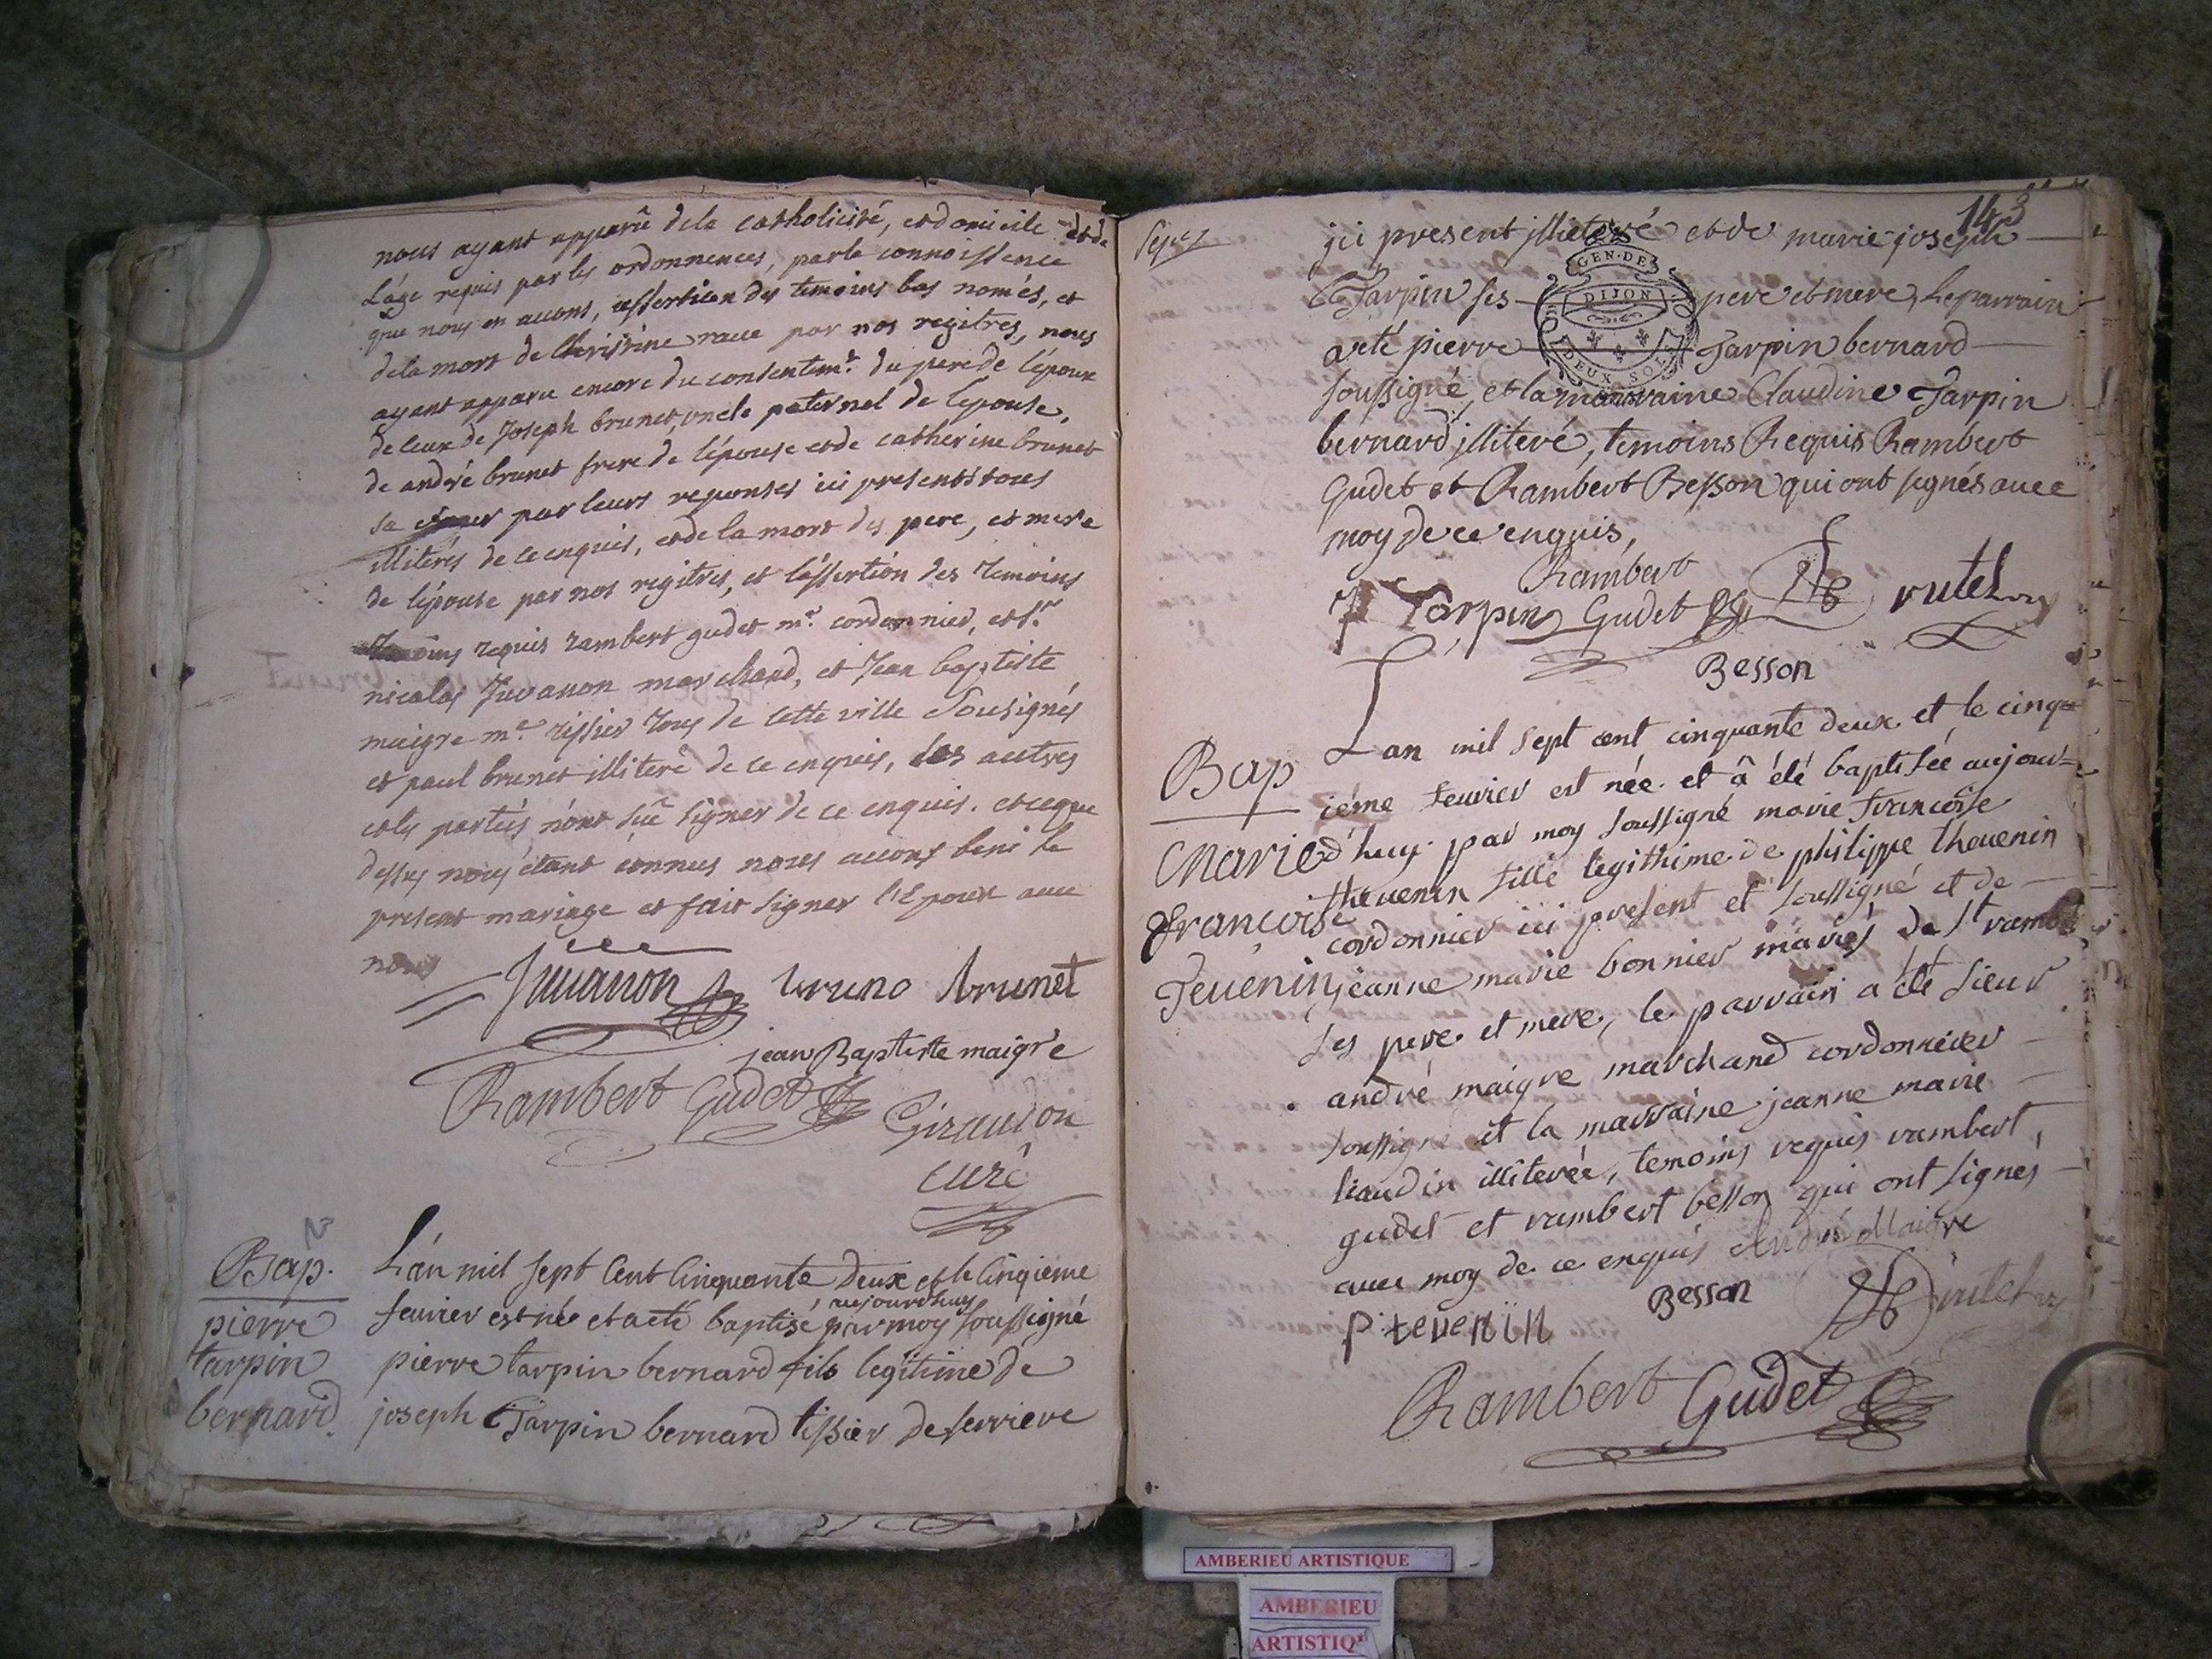 nous ayant apparû dela catholicité, et domicile et de
L'age requis par les ordonnences, par la connoissence
que nous en avons, assertion des temoins bas només, et
dela mort de Christine rave par nos regitres, nous
ayant apparu encore du consentemt. du pere de l'époux
de ceux de Joseph brunet, oncle paternel de l'epouse,
de andré brunet frere de l'épouse et de catherine brunet
sa par leurs reponses ici presents tous
illiterés de ce enquis, et de la mort des pere, et mere
de l'épouse par nos regitres, et l'assertion des temoins
temoins requis rambert gudet mr. cordonnier, et sr.
nicolas Juvanon marchand, et Jean baptiste
maigre me. tissier tous de cette ville Sousignés
et paul brunet illiteré de ce enquis, les autres
et les parties n'ont sû signer de ce enquis. et ce que
dessus nous étant connus nous avons beni le
present mariage et fait signer l'Epoux avec
nous
Juvanon bruno brunet
jean Baptiste maigre
Rambert Gudet Giraudon
curé
Bap.
pierre
tarpin
bernard
L'an mil sept Cent Cinquante Deux et le Cinqieme
aujourdhuy
fevrier est né et a eté baptisé par moy soussigné
pierre tarpin bernard fils legitime de
joseph Tarpin bernard tissier de serriere
143
jci present jlliteré et de marie joseph
Tarpin ses pere et mere, Le parrain
GEN. DE
DIJON
DEUX SOLS
a eté pierre Tarpin bernard
soussigné, et la marraine Claudine Tarpin
bernard jlliteré, temoins Requis Rambert
Gudet et Rambert Besson qui ont signés avec
moy de ce enquis,
Rambert
P Tarpin Gudet rutet
Besson
Bap
Marie
françoise
Tevenin
Lan mil sept cent cinquante deux et le cinq=
iéme fevrier est née et â été baptisée aujour=
d'huy par moy soussigné marie francoise
thevenin fille legithime de philippe thevenin
cordonnier ici present et soussigné et de
jeanne marie bonnier mariés de st rambt
ses pere et mere, le parrain a été sieur
andré maigre marchand cordonnier
soussigné et la marraine jeanne marie
liaudin illiterée, temoins requis rambert
gudet et rambert besson qui ont signés
avec moy de ce enquis André Maigre
p: tevenin Besson rutet
Rambert Gudet
AMBERIEU ARTISTIQUE
AMBERIEU
ARTISTIQ